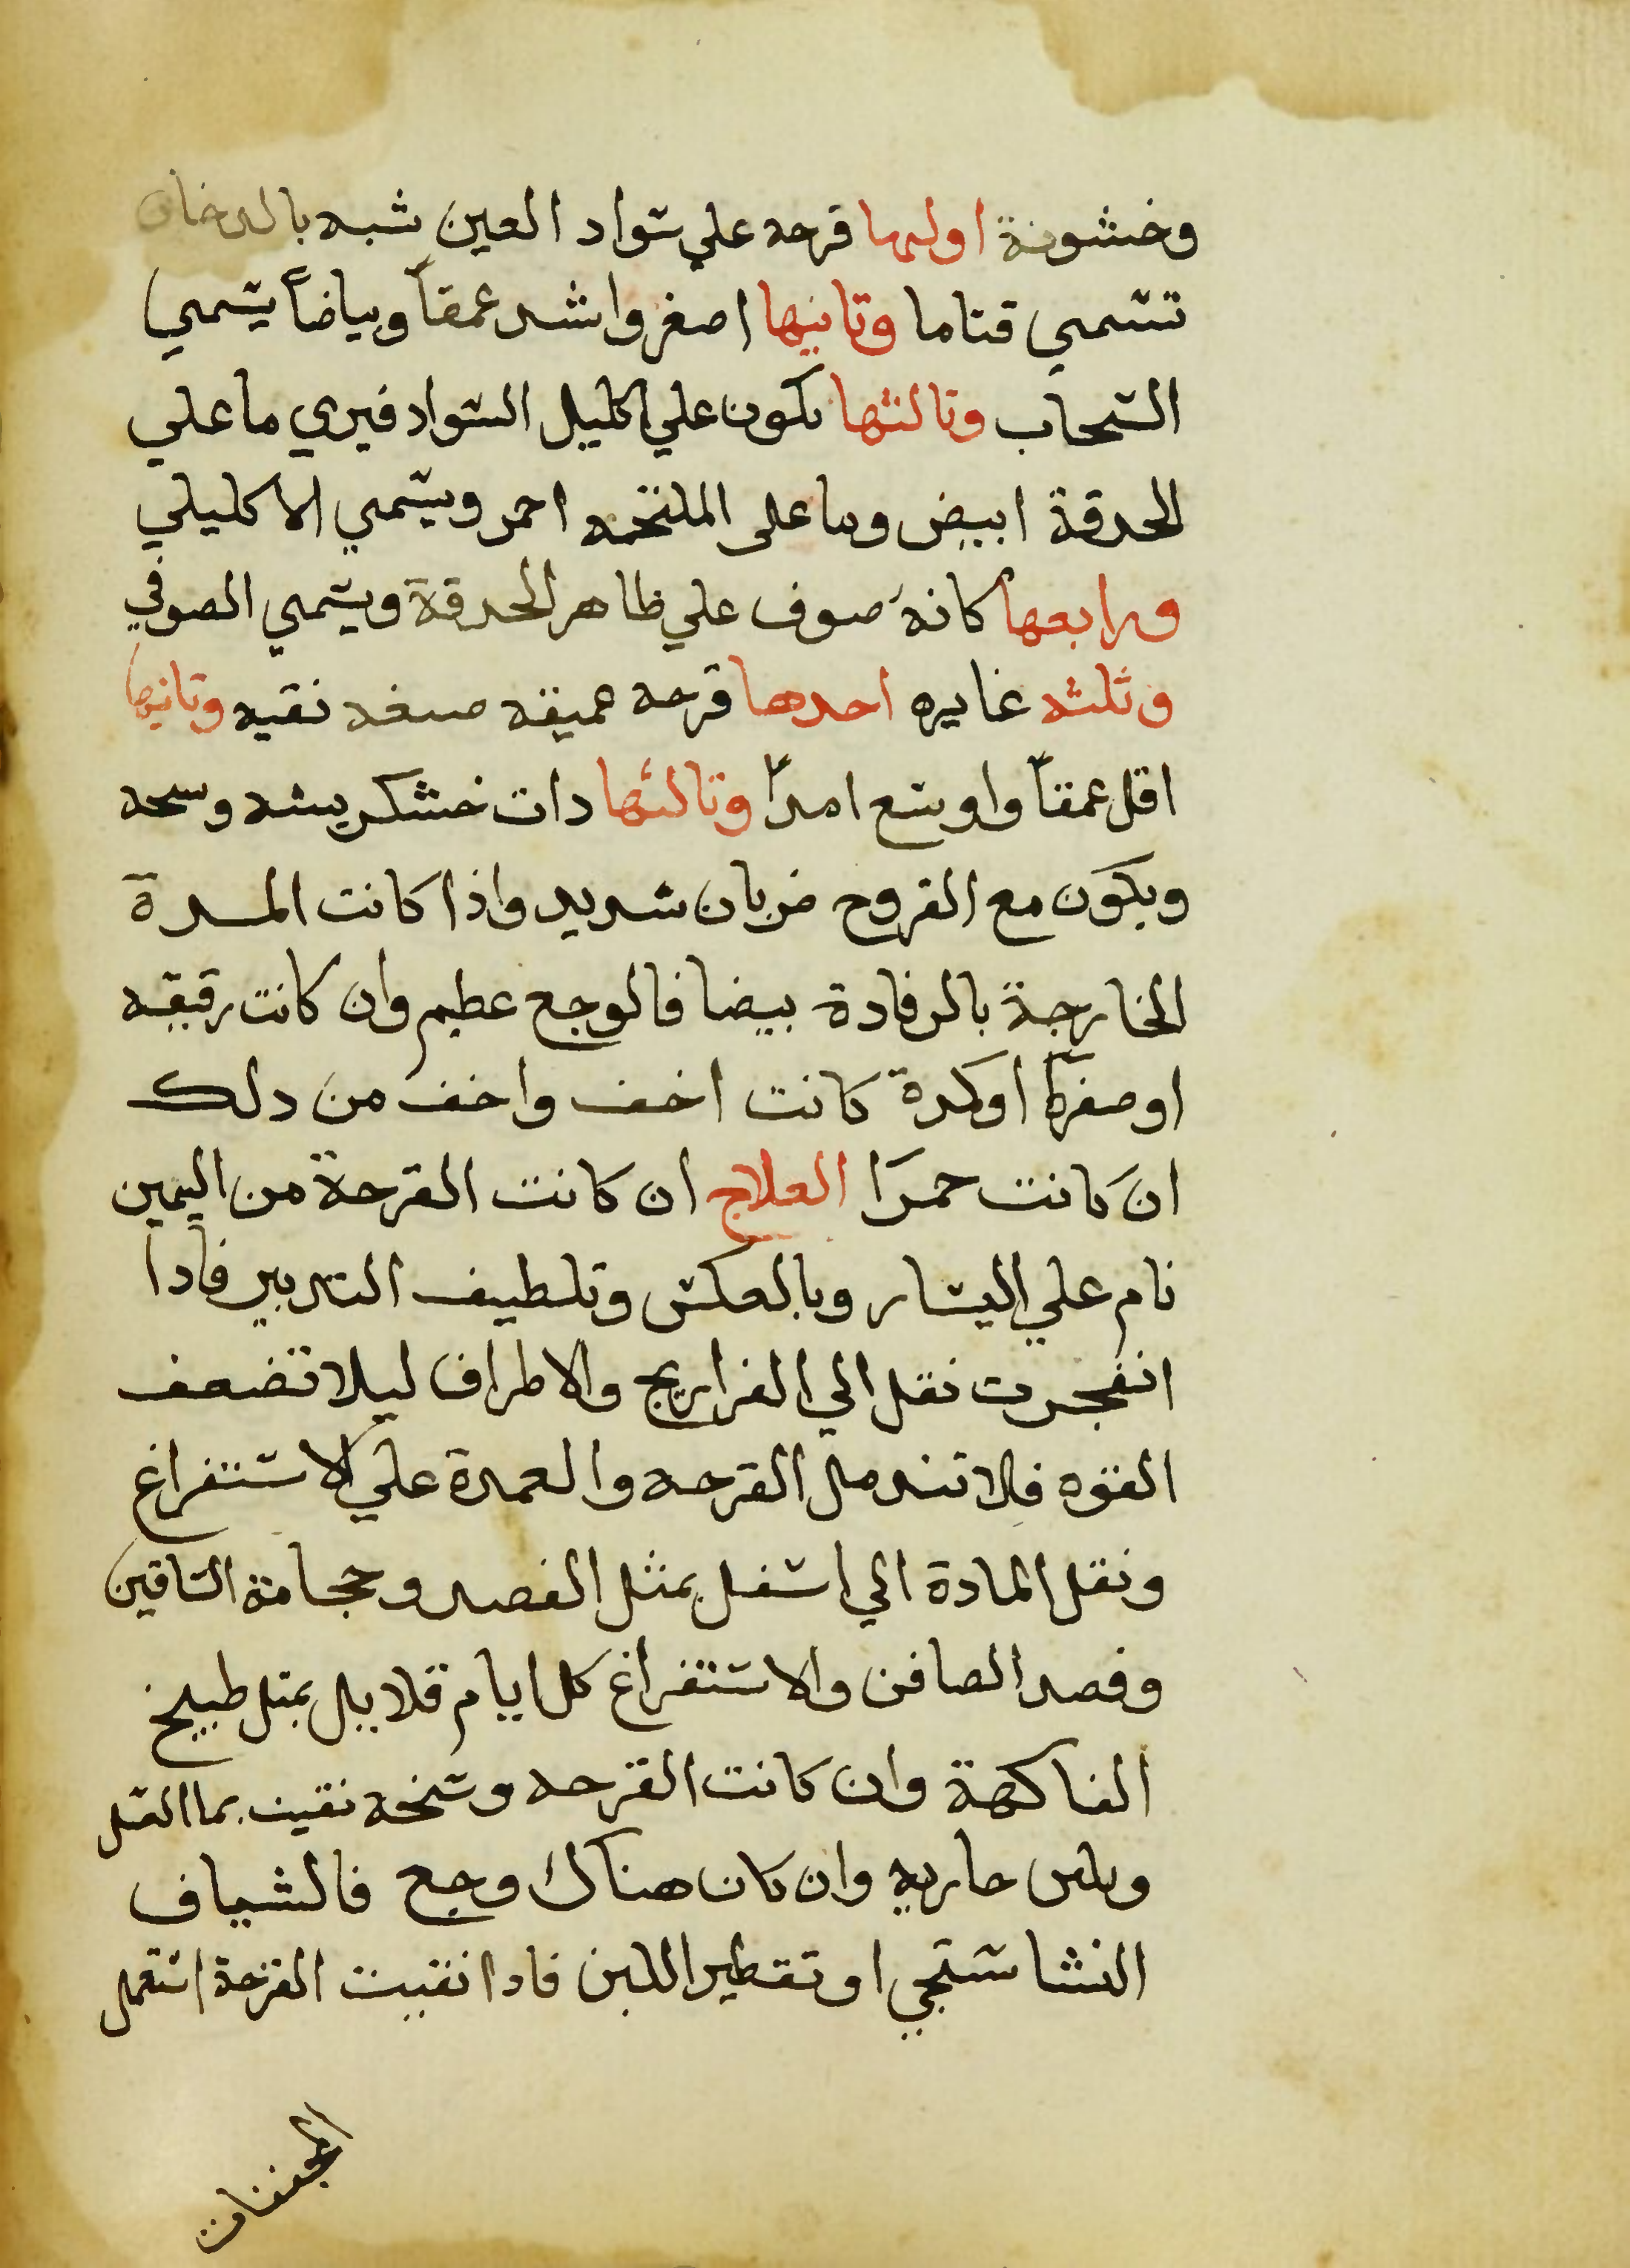 وخشونة اولها قرحه علي سواد العين شبه بالدخان
تسمي قتاما وتانيها اصغر واشد عمقاً وبياضاً يسمي
السحاب وتالتها تكون علي اكليل السواد فيري ما علي
الحدقة ابيض وما على الملتحمه احمر ويسمي الاكليلي
ورابعها كانه صوف علي ظاهر الحدقة ويسمي الصوفي
وثلثه غايره احدها قرحه عميقه ضيقه نقيه وتانيها
اقل عمقاً واوسع امداً وتالثها دات خشكريشه وسخه
ويكون مع القروح ضربان شديد واذا كانت المدة
الخارجة بالرفادة بيضا فالوجع عظيم وان كانت رقيقه
او صفرآ او كدرة كانت اخف واخف من دلك
ان كانت حمرا العلاج ان كانت القرحة من اليمين
نام علي اليسار وبالعكس وتلطيف التدبير فادا
انفجرت نقل الي الفراريج والاطراف ليلا تضعف
القوه فلا تندمل القرحه والعمدة علي الاستفراغ
ونقل المادة الي اسفل بمثل الفصد وحجامة الساقين
وفصد الصافن والاستفراغ كل ايام قلايل بمتل طبيخ
الفاكهة وان كانت القرحه وسخه نقيت بما العسل
وبلبن جاريه وان كان هناك وجع فالشياف
النشاستجي او تقطير اللبن فادا نقيت القرحة استعمل
المجففات